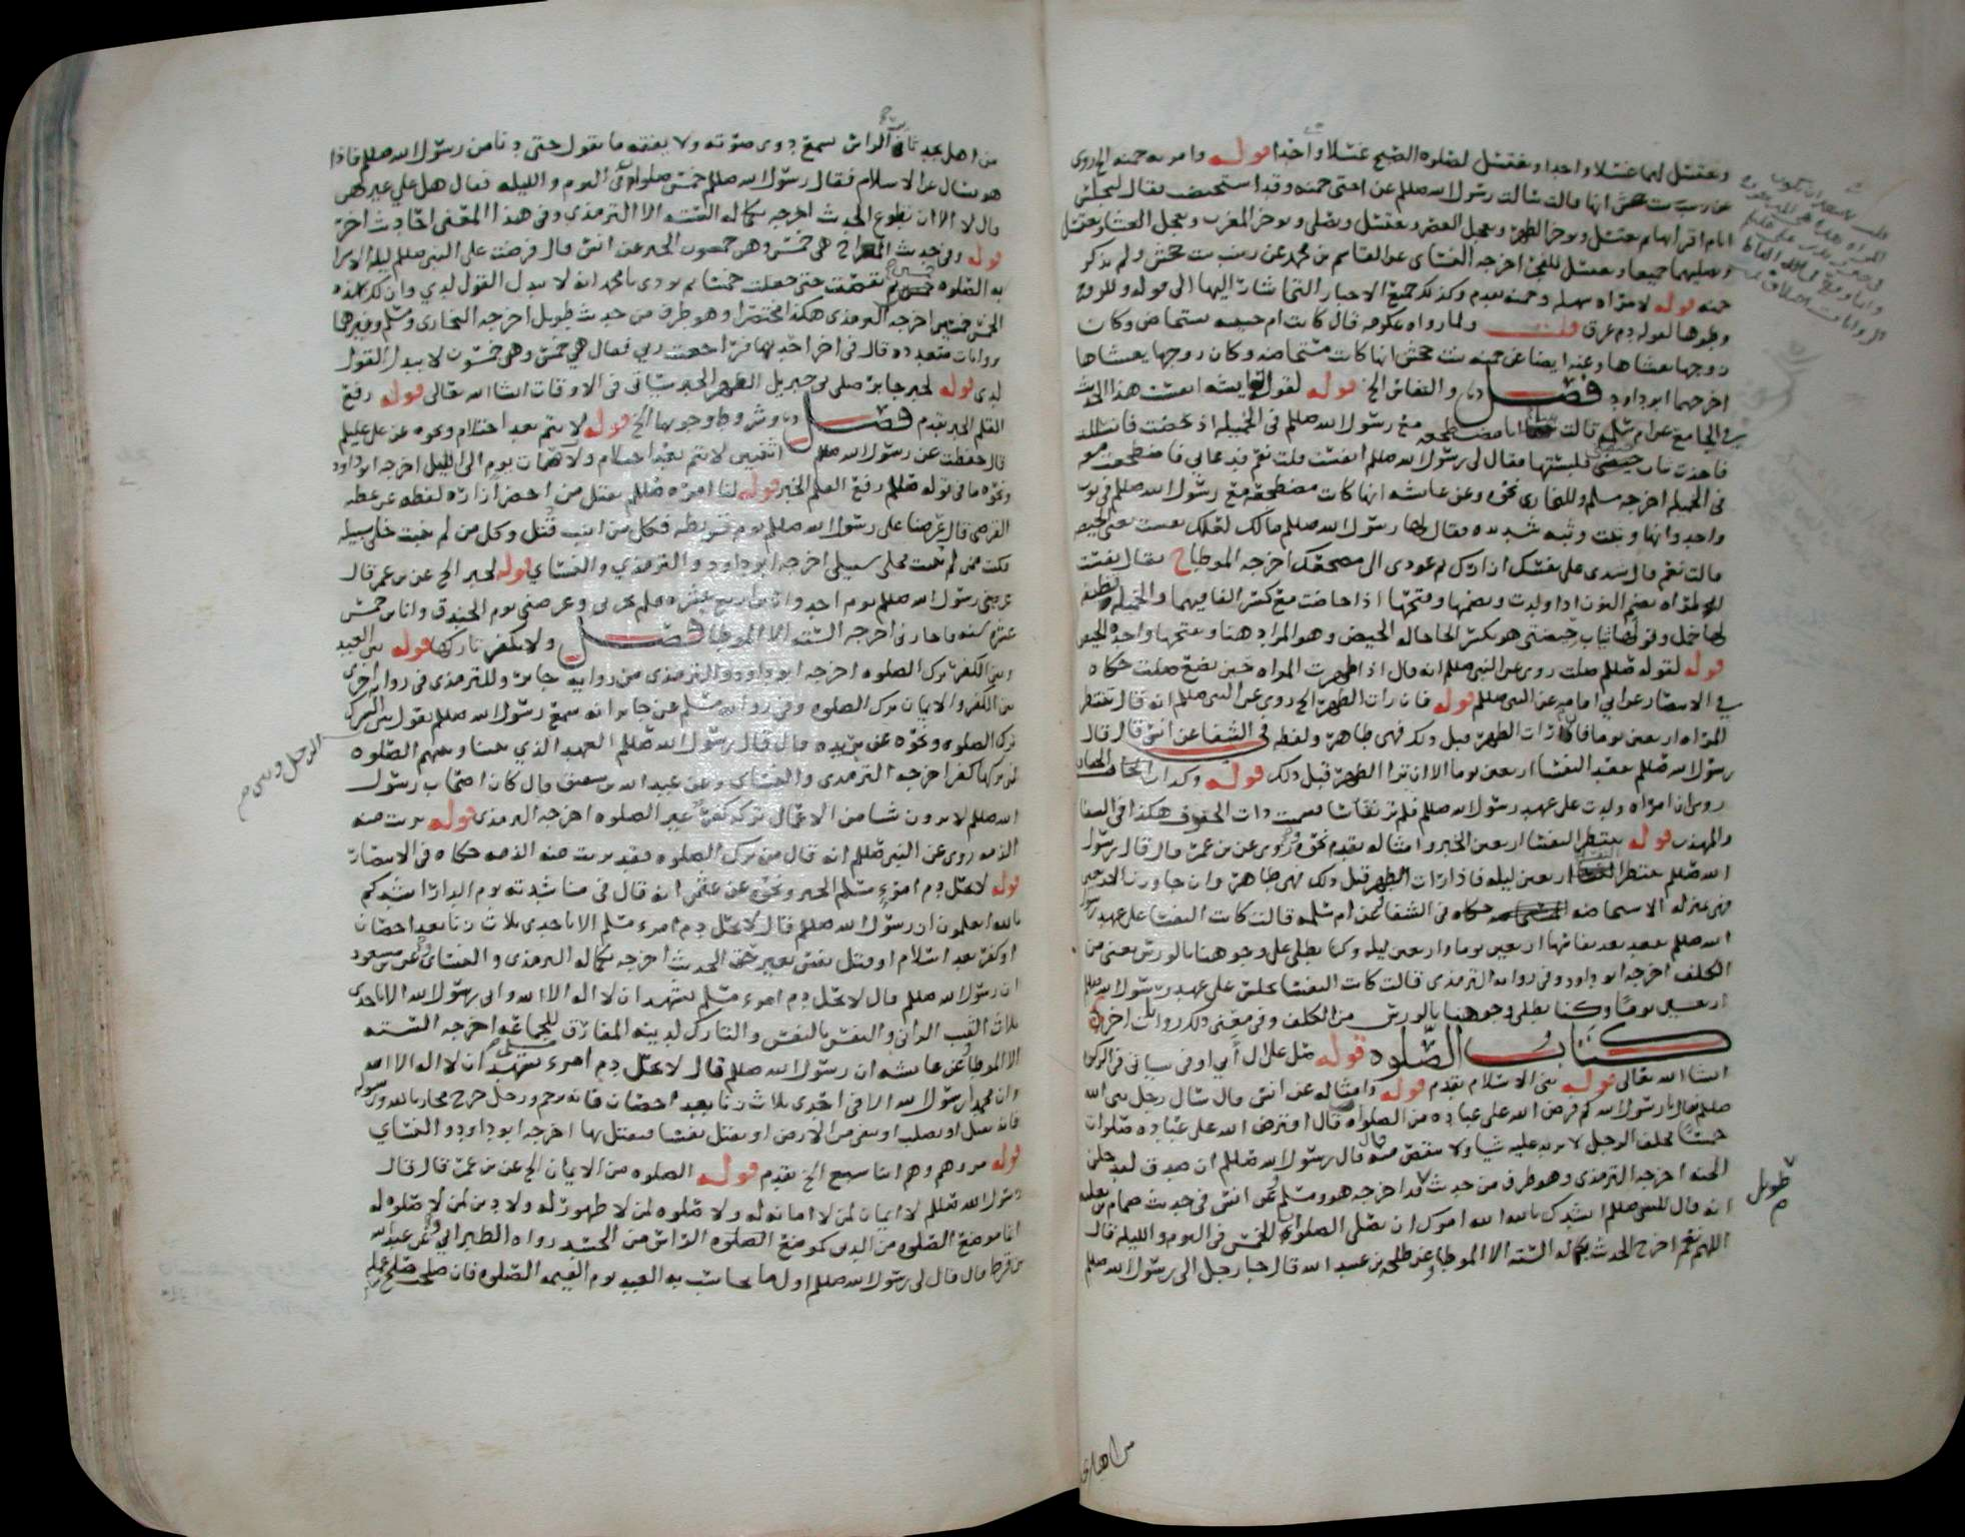 وتغتسل لهما غسلا واحدا وتغتسل لصلوه الصبح غسلا واحدا قوله وامر به حمنه الخ روى
عن زينب بنت جحش انها قالت سالت رسول الله صللم عن اختى حمنه وقد استحيضت فقال لتجلس
ايام اقرائها ثم تغتسل وتوخر الظهر وتعجل العصر وتغتسل وتصلى وتوخر المغرب وتعجل العشا وتغتسل
وتصليهما جميعا وتغتسل للفجر اخرجه النساى عن القاسم بن محمد عن زينب بنت جحش ولم يذكر
حمنه قوله لامراه سهيله وحمنه تقدم وكذلك جميع الاخبار التى اشار اليها الى قوله وللزوج
وطوها لقوله دم عرق قلت ولما رواه عكرمه قال كانت ام حبيبه تستحاض وكان
زوجها يغشاها وعنه ايضا عن حمنه بنت جحش انها كانت مستحاضه وكان زوجها يغشاها
اخرجهما ابو داود فصل والنفاس الخ قوله لقوله لعايشه انفست هذا الحديث
فى الجامع عن ام سلمه قالت بينا انا مضطجعه مع رسول الله صللم فى الخميله اذ حضت فانسللت
فاخذت ثياب حيضتى فلبستها فقال لى رسول الله صللم انفست قلت نعم فدعانى فاضطجعت معه
فى الخميله اخرجه مسلم وللبخارى نحوه وعن عايشه انها كانت مضطجعه مع رسول الله صللم فى ثوب
واحد وانها وثبت وثبه شديده فقال لها رسول الله صللم مالك لعلك نفست يعنى الحيضه
قالت نعم قال شدى على نفسك ازارك ثم عودى الى مضجعك اخرجه الموطا ح يقال نفست
المراه بضم النون اذا ولدت وبضمها وفتحها اذا حاضت مع كسر الفا فيهما والخميله قطيفه
لها خمل وقولها ثياب حيضتى هو بكسر الحا حاله الحيض وهو المراد هنا وبفتحها واحده الحيض
قوله لقوله صللم صلت روى عن النبى صللم انه قال اذا طهرت المراه حين تضع صلت حكاه
فى الانتصار عن ابى امامه عن النبى صللم قوله فان رات الطهر الخ روى عن النبى صللم انه قال تنتظر
المراه اربعين يوما فان رات الطهر قبل ذلك فهى طاهر ولفظه فى الشفا عن انس قال قال
رسول الله صللم تقعد النفسا اربعين يوما الا ان ترا الطهر قبل ذلك قوله وكذات الجفاف
روى ان امراه ولدت على عهد رسول الله صللم فلم تر نفاسا فسميت ذات الجفوف هكذا فى الشفا
والمهذب قوله تنتظر النفسا اربعين الخبر وامثاله تقدم نحوه وروى عن بن عمر قال قال رسول
الله صللم تنتظر النفسا اربعين ليله فاذا رات الطهر قبل ذلك فهى طاهر وان جاوزت الاربعين
فهى بمنزله الاستحاضه حكاه فى الشفا وعن ام سلمه قالت كانت النفسا على عهد رسول
الله صللم تقعد بعد نفاسها اربعين يوما واربعين ليله وكنا نطلى على وجوهنا بالورس يعنى من
الكلف اخرجه ابو داود وفى روايه الترمذى قالت كانت النفسا تجلس على عهد رسول الله صللم
اربعين يوما وكنا نطلى وجوهنا بالورس من الكلف وفى معنى ذلك روايات اخر
كتاب الصلوه قوله مثل علال أبى اوفى سياتى فى الزكوه
انشا الله تعالى قوله بنى الاسلام تقدم قوله وامثاله عن انس قال سال رجل نبى الله
صللم فقال يا رسول الله كم فرض الله على عباده من الصلوات قال افترض الله على عباده صلوات
خمسا فحلف الرجل لا يزيد عليه شيا ولا ينقص منه قال رسول الله صللم ان صدق ليدخلن
الجنه اخرجه الترمذى وهو طرف من حديث قد اخرجه هو ومسلم وعن انس فى حديث ضمام بن ثعلبه
طويل
انه قال للنبى صللم انشدك بالله آلله امرك ان نصلى الصلوات الخمس فى اليوم والليله قال
اللهم نعم اخرج الحديث بكماله السته الا الموطا وعن طلحه بن عبيد الله قال جا رجل الى رسول الله صللم
من اهل نجد
من اهل نجد ثاير الراس نسمع دوى صوته ولا نفقه ما يقول حتى دنا من رسول الله صللم فاذا
هو يسال عن الاسلام فقال رسول الله صللم خمس صلوات فى اليوم والليله فقال هل علي غيرهن
قال لا الا ان تطوع الحديث اخرجه بكماله السته الا الترمذى وفى هذا المعنى احاديث اخر
قوله وفى حديث المعراج هى خمس وهى خمسون الخبر عن انس قال فرضت على النبى صللم ليله الاسرا
به الصلوه خمسين ثم نقصت حتى جعلت خمسا ثم نودى يا محمد انه لا يبدل القول لدي وان لك بهذه
الخمس خمسين اخرجه الترمذى هكذا مختصرا وهو طرف من حديث طويل اخرجه البخارى ومسلم وغيرهما
بروايات متعدده قال فى اخر احدها فراجعت ربى فقال هى خمس وهى خمسون لا يبدل القول
لدى قوله لخبر جابر صلى بى جبريل الظهر الخبر سياتى فى الاوقات انشا الله تعالى قوله رفع
القلم الخبر تقدم فصل وشروط وجوبها الخ قوله لا يتم بعد احتلام ونحوه عن على عليلم
قال حفظت عن رسول الله صللم اثنتين لا يتم بعد احتلام ولا صمات يوم الى الليل اخرجه ابو داود
ونحوه ما فى قوله صللم رفع القلم الخبر قوله لنا امره صللم بقتل من اخضر ازاره لفظه عن عطيه
القرضى قال عرضنا على رسول الله صللم يوم قريظه فكل من انبت قتل وكل من لم ينبت خلى سبيله
فكنت ممن لم ينبت فخلى سبيلى اخرجه ابو داود والترمذي والنساي قوله لخبر الخ عن بن عمر قال
عرضنى رسول الله صللم يوم احد وانا بن اربع عشره فلم يجزنى وعرضنى يوم الخندق وانا بن خمس
عشره سنه فاجازنى اخرجه السته الا الموطا فصل ولا يكفر تاركها قوله بين العبد
وبين الكفر ترك الصلوه اخرجه ابو داود والترمذى من روايه جابر وللترمذى فى روايه اخرى
بين الكفر والايمان ترك الصلوه وفى روايه مسلم عن جابر انه سمع رسول الله صللم يقول بين الشرك
الرجل وبين
ترك الصلوه ونحوه عن بريده قال قال رسول الله صللم العهد الذي بيننا وبينهم الصلوه
فمن تركها كفر اخرجه الترمذى والنساى وعن عبد الله بن شقيق قال كان اصحاب رسول
الله صللم لا يرون شيا من الاعمال تركه كفر غير الصلوه اخرجه الترمذى قوله بريت منه
الذمه روى عن النبى صللم انه قال من ترك الصلوه فقد بريت منه الذمه حكاه فى الانتصار
قوله لا يحل دم امرئ مسلم الخبر ونحوه عن عثمن انه قال فى مناشدته يوم الدار انشدكم
بالله اتعلمون ان رسول الله صللم قال لا يحل دم امرء مسلم الا باحدى ثلاث زنا بعد احصان
او كفر بعد اسلام او قتل نفس بغير حق الحديث اخرجه بكماله الترمذى والنساى وعن بن مسعود
ان رسول الله صللم قال لا يحل دم امرء مسلم يشهد ان لا اله الا الله وانى رسول الله الا باحدى
ثلاث الثيب الزانى والنفس بالنفس والتارك لدينه المفارق للجماعه اخرجه السته
الا الموطا وعن عايشه ان رسول الله صللم قال لا يحل دم امرء مسلم يشهد ان لا اله الا الله
وان محمدا رسول الله الا فى احدى ثلاث زنا بعد احصان فانه يرجم ورجل خرج محاربا لله ورسوله
فانه يقتل او يصلب او ينفى من الارض او يقتل نفسا فيقتل بها اخرجه ابو داود والنساي
قوله مروهم وهم ابنا سبع الخ تقدم قوله الصلوه من الايمان الخ عن بن عمر قال قال
رسول الله صللم لا ايمان لمن لا امانه له ولا صلوه لمن لا طهور له ولا دين لمن لا صلوه له
انما موضع الصلوه من الدين كموضع الصلوه الراس من الجسد رواه الطبرانى وعن عبد الله
بن قرط قال قال لى رسول الله صللم اول ما يحاسب به العبد يوم القيمه الصلوه فان صلحت صلح عمله